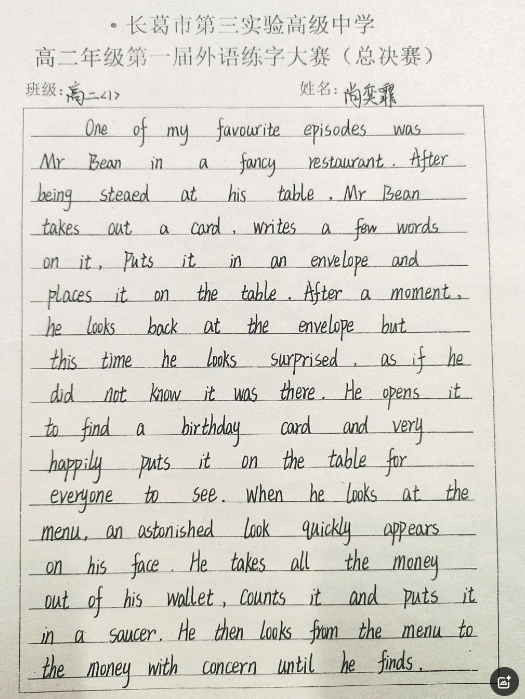 • 长葛市第三实验高级中学
高二年级第一届外语练字大赛（总决赛）
班级：高二<1> 姓名：尚奕霏
One of my favourite episodes was
Mr Bean in a fancy restaurant. After
being steaed at his table, Mr Bean
takes out a card, writes a few words
on it, Puts it in an envelope and
places it on the table. After a moment,
he looks back at the envelope but
this time he looks surprised, as if he
did not know it was there. He opens it
to find a birthday card and very
happily puts it on the table for
everyone to see. When he looks at the
menu, an astonished look quickly appears
on his face. He takes all the money
out of his wallet, Counts it and puts it
in a saucer. He then looks from the menu to
the money with concern until he finds.